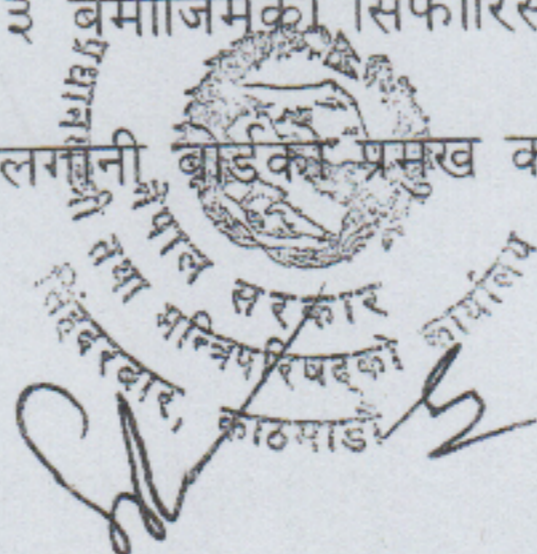 ३ बमोजिमको सिफारिस
लगानी बोर्डको प्रमुख क
नेपाल सरकार
प्रधानमन्त्री तथा मन्त्रिपरिषद्को कार्यालय
सिंहदरबार, काठमाडौं